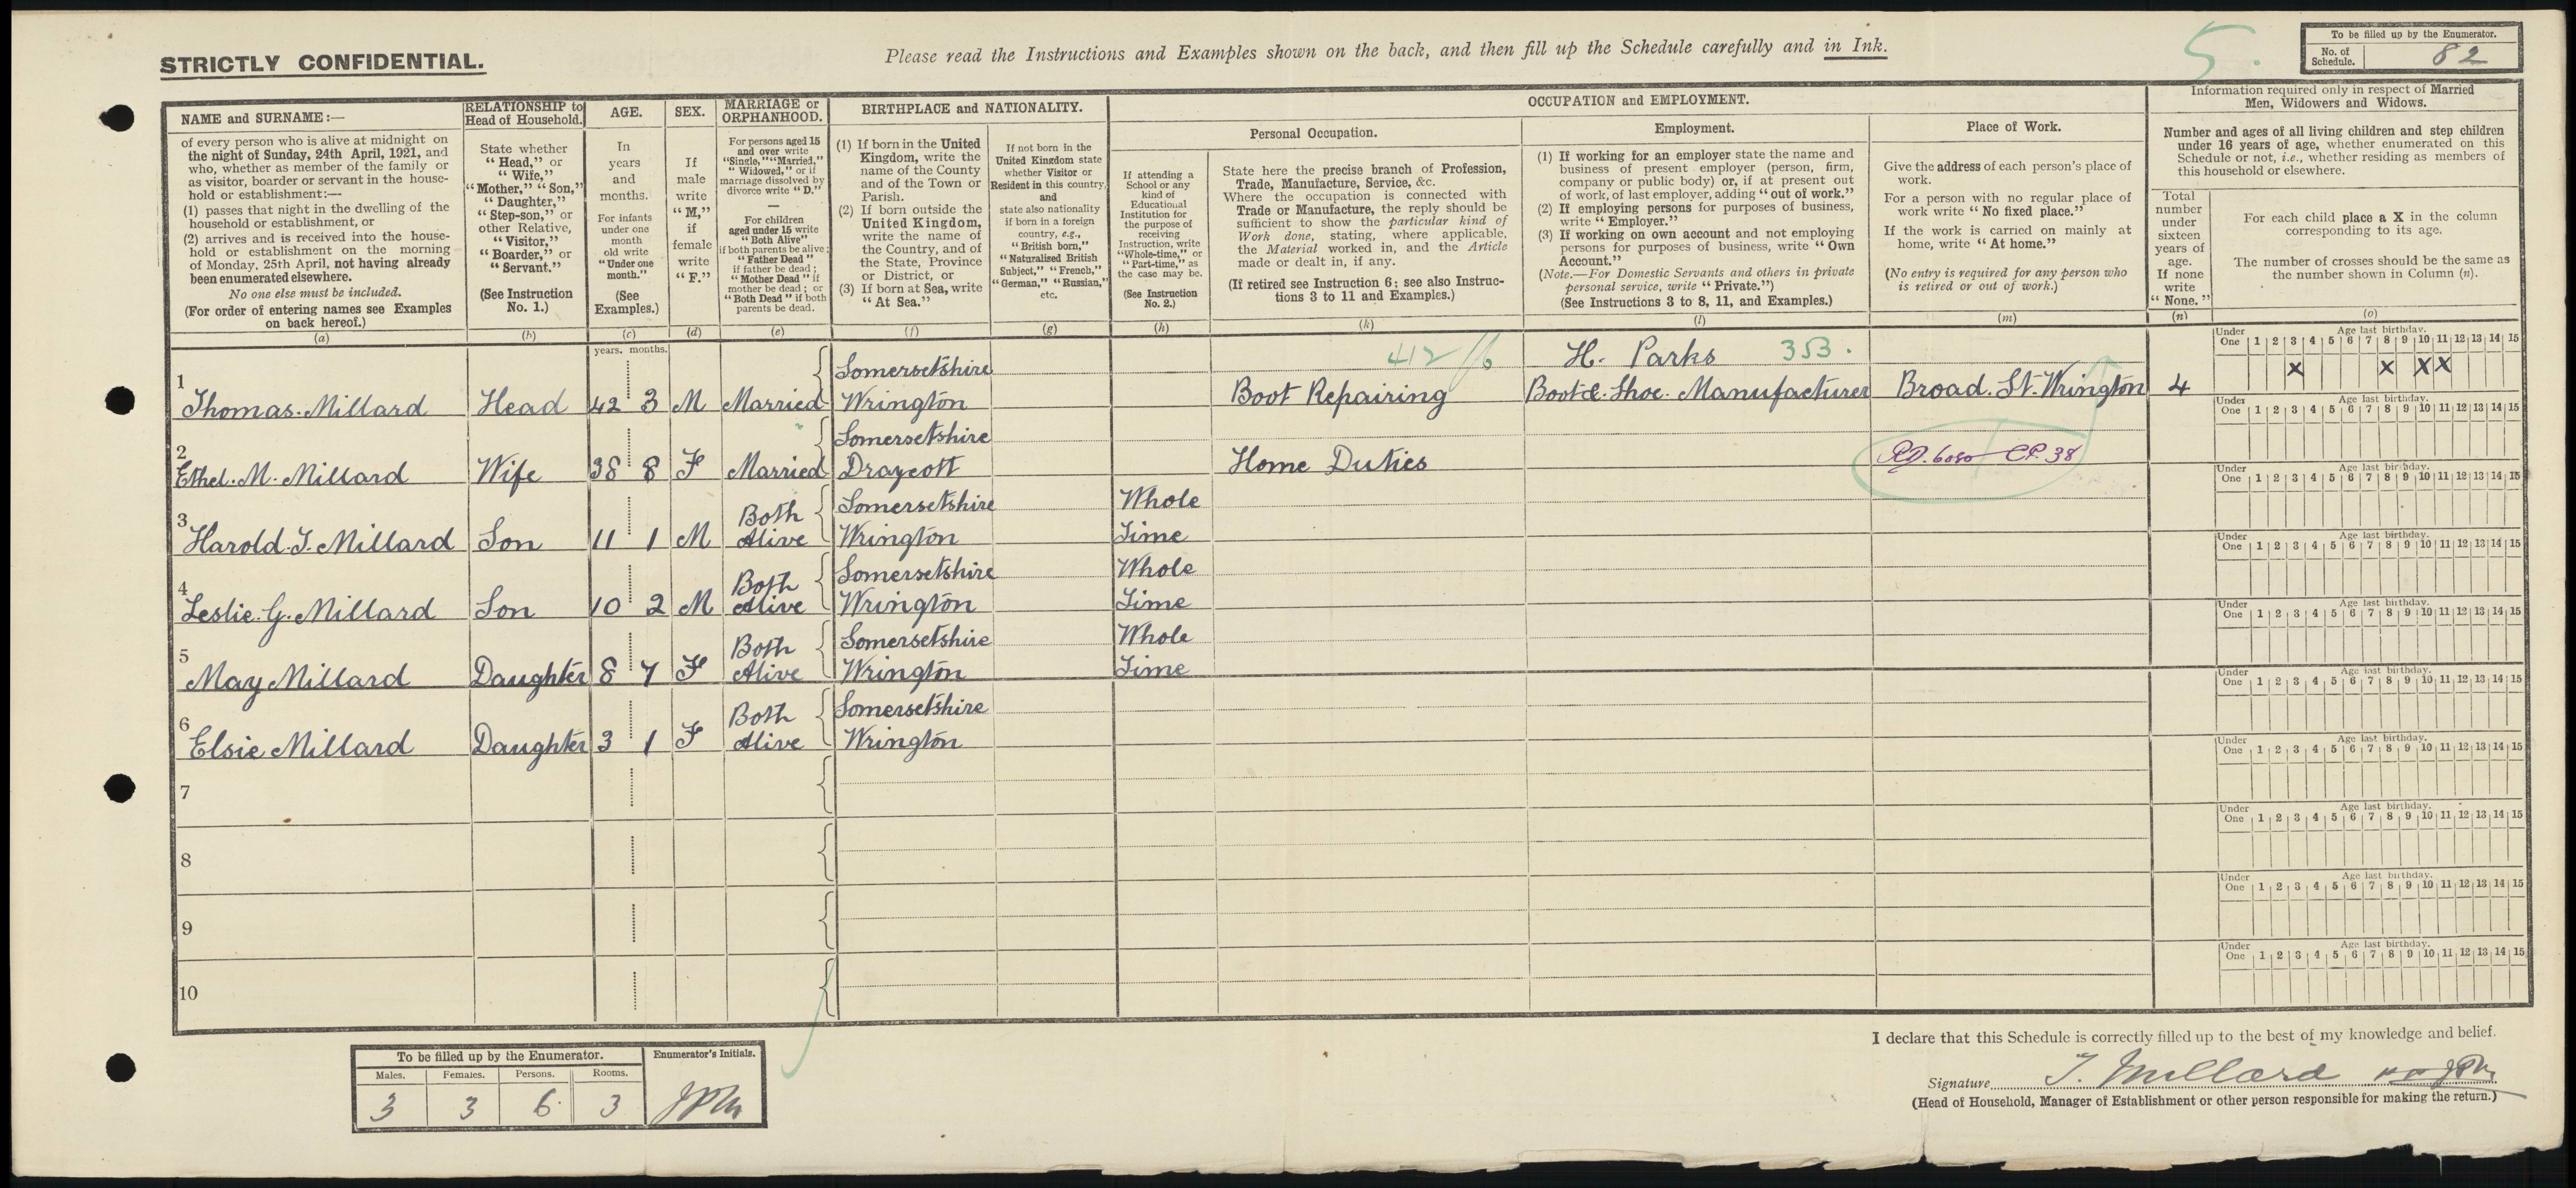 STRICTLY CONFIDENTIAL.
Please read the Instructions and Examples shown on the back, and then fill up the Schedule carefully and in Ink.
5.
To be filled up by the Enumerator.
No. of Schedule. 82
NAME and SURNAME:—
of every person who is alive at midnight on
the night of Sunday, 24th April, 1921, and
who, whether as member of the family or
as visitor, boarder or servant in the house-
hold or establishment:—
(1) passes that night in the dwelling of the
household or establishment, or
(2) arrives and is received into the house-
hold or establishment on the morning
of Monday, 25th April, not having already
been enumerated elsewhere.
No one else must be included.
(For order of entering names see Examples
on back hereof.)
(a)
RELATIONSHIP to
Head of Household.
State whether
"Head," or
"Wife,"
"Mother," "Son,"
"Daughter,"
"Step-son," or
other Relative,
"Visitor,"
"Boarder," or
"Servant."
(See Instruction
No. 1.)
(b)
AGE.
In
years
and
months.
For infants
under one
month
old write
"Under one
month."
(See
Examples.)
(c)
SEX.
If
male
write
"M,"
if
female
write
"F."
(d)
MARRIAGE or
ORPHANHOOD.
For persons aged 15
and over write
"Single," "Married,"
"Widowed," or if
marriage dissolved by
divorce write "D."
—
For children
aged under 15 write
"Both Alive"
if both parents be alive;
"Father Dead"
if father be dead;
"Mother Dead" if
mother be dead; or
"Both Dead" if both
parents be dead.
(e)
BIRTHPLACE and NATIONALITY.
(1) If born in the United
Kingdom, write the
name of the County
and of the Town or
Parish.
(2) If born outside the
United Kingdom,
write the name of
the Country, and of
the State, Province
or District, or
(3) If born at Sea, write
"At Sea."
(f)
If not born in the
United Kingdom state
whether Visitor or
Resident in this country,
and
state also nationality
if born in a foreign
country, e.g.,
"British born,"
"Naturalised British
Subject," "French,"
"German," "Russian,"
etc.
(g)
OCCUPATION and EMPLOYMENT.
If attending a
School or any
kind of
Educational
Institution for
the purpose of
receiving
Instruction, write
"Whole-time," or
"Part-time," as
the case may be.
(See Instruction
No. 2.)
(h)
Personal Occupation.
State here the precise branch of Profession,
Trade, Manufacture, Service, &c.
Where the occupation is connected with
Trade or Manufacture, the reply should be
sufficient to show the particular kind of
Work done, stating, where applicable,
the Material worked in, and the Article
made or dealt in, if any.
(If retired see Instruction 6; see also Instruc-
tions 3 to 11 and Examples.)
(k)
Employment.
(1) If working for an employer state the name and
business of present employer (person, firm,
company or public body) or, if at present out
of work, of last employer, adding "out of work."
(2) If employing persons for purposes of business,
write "Employer."
(3) If working on own account and not employing
persons for purposes of business, write "Own
Account."
(Note.—For Domestic Servants and others in private
personal service, write "Private.")
(See Instructions 3 to 8, 11, and Examples.)
(l)
Place of Work.
Give the address of each person's place of
work.
For a person with no regular place of
work write "No fixed place."
If the work is carried on mainly at
home, write "At home."
(No entry is required for any person who
is retired or out of work.)
(m)
Information required only in respect of Married
Men, Widowers and Widows.
Number and ages of all living children and step children
under 16 years of age, whether enumerated on this
Schedule or not, i.e., whether residing as members of
this household or elsewhere.
Total
number
under
sixteen
years of
age.
If none
write
"None."
(n)
For each child place a X in the column
corresponding to its age.
The number of crosses should be the same as
the number shown in Column (n).
(o)
years. months.
Under One Age last birthday. 1 2 3 4 5 6 7 8 9 10 11 12 13 14 15
412/6 H. Parks 353.
Somersetshire X X X X
1 Thomas. Millard Head 42 3 M Married Wrington Boot Repairing Boot & Shoe. Manufacturer Broad. St. Wrington 4
Under One Age last birthday. 1 2 3 4 5 6 7 8 9 10 11 12 13 14 15
Somersetshire
2 Ethel. M. Millard Wife 38 8 F Married Draycott Home Duties CP. 38
Under One Age last birthday. 1 2 3 4 5 6 7 8 9 10 11 12 13 14 15
Both Somersetshire Whole
3 Harold. T. Millard Son 11 1 M Alive Wrington Time
Under One Age last birthday. 1 2 3 4 5 6 7 8 9 10 11 12 13 14 15
Both Somersetshire Whole
4 Leslie. G. Millard Son 10 2 M Alive Wrington Time
Under One Age last birthday. 1 2 3 4 5 6 7 8 9 10 11 12 13 14 15
Both Somersetshire Whole
5 May Millard Daughter 8 7 F Alive Wrington Time
Under One Age last birthday. 1 2 3 4 5 6 7 8 9 10 11 12 13 14 15
Both Somersetshire
6 Elsie Millard Daughter 3 1 F Alive Wrington
Under One Age last birthday. 1 2 3 4 5 6 7 8 9 10 11 12 13 14 15
7
Under One Age last birthday. 1 2 3 4 5 6 7 8 9 10 11 12 13 14 15
8
Under One Age last birthday. 1 2 3 4 5 6 7 8 9 10 11 12 13 14 15
9
Under One Age last birthday. 1 2 3 4 5 6 7 8 9 10 11 12 13 14 15
10
To be filled up by the Enumerator. Enumerator's Initials.
Males. Females. Persons. Rooms.
3 3 6. 3
I declare that this Schedule is correctly filled up to the best of my knowledge and belief.
Signature T. Millard
(Head of Household, Manager of Establishment or other person responsible for making the return.)